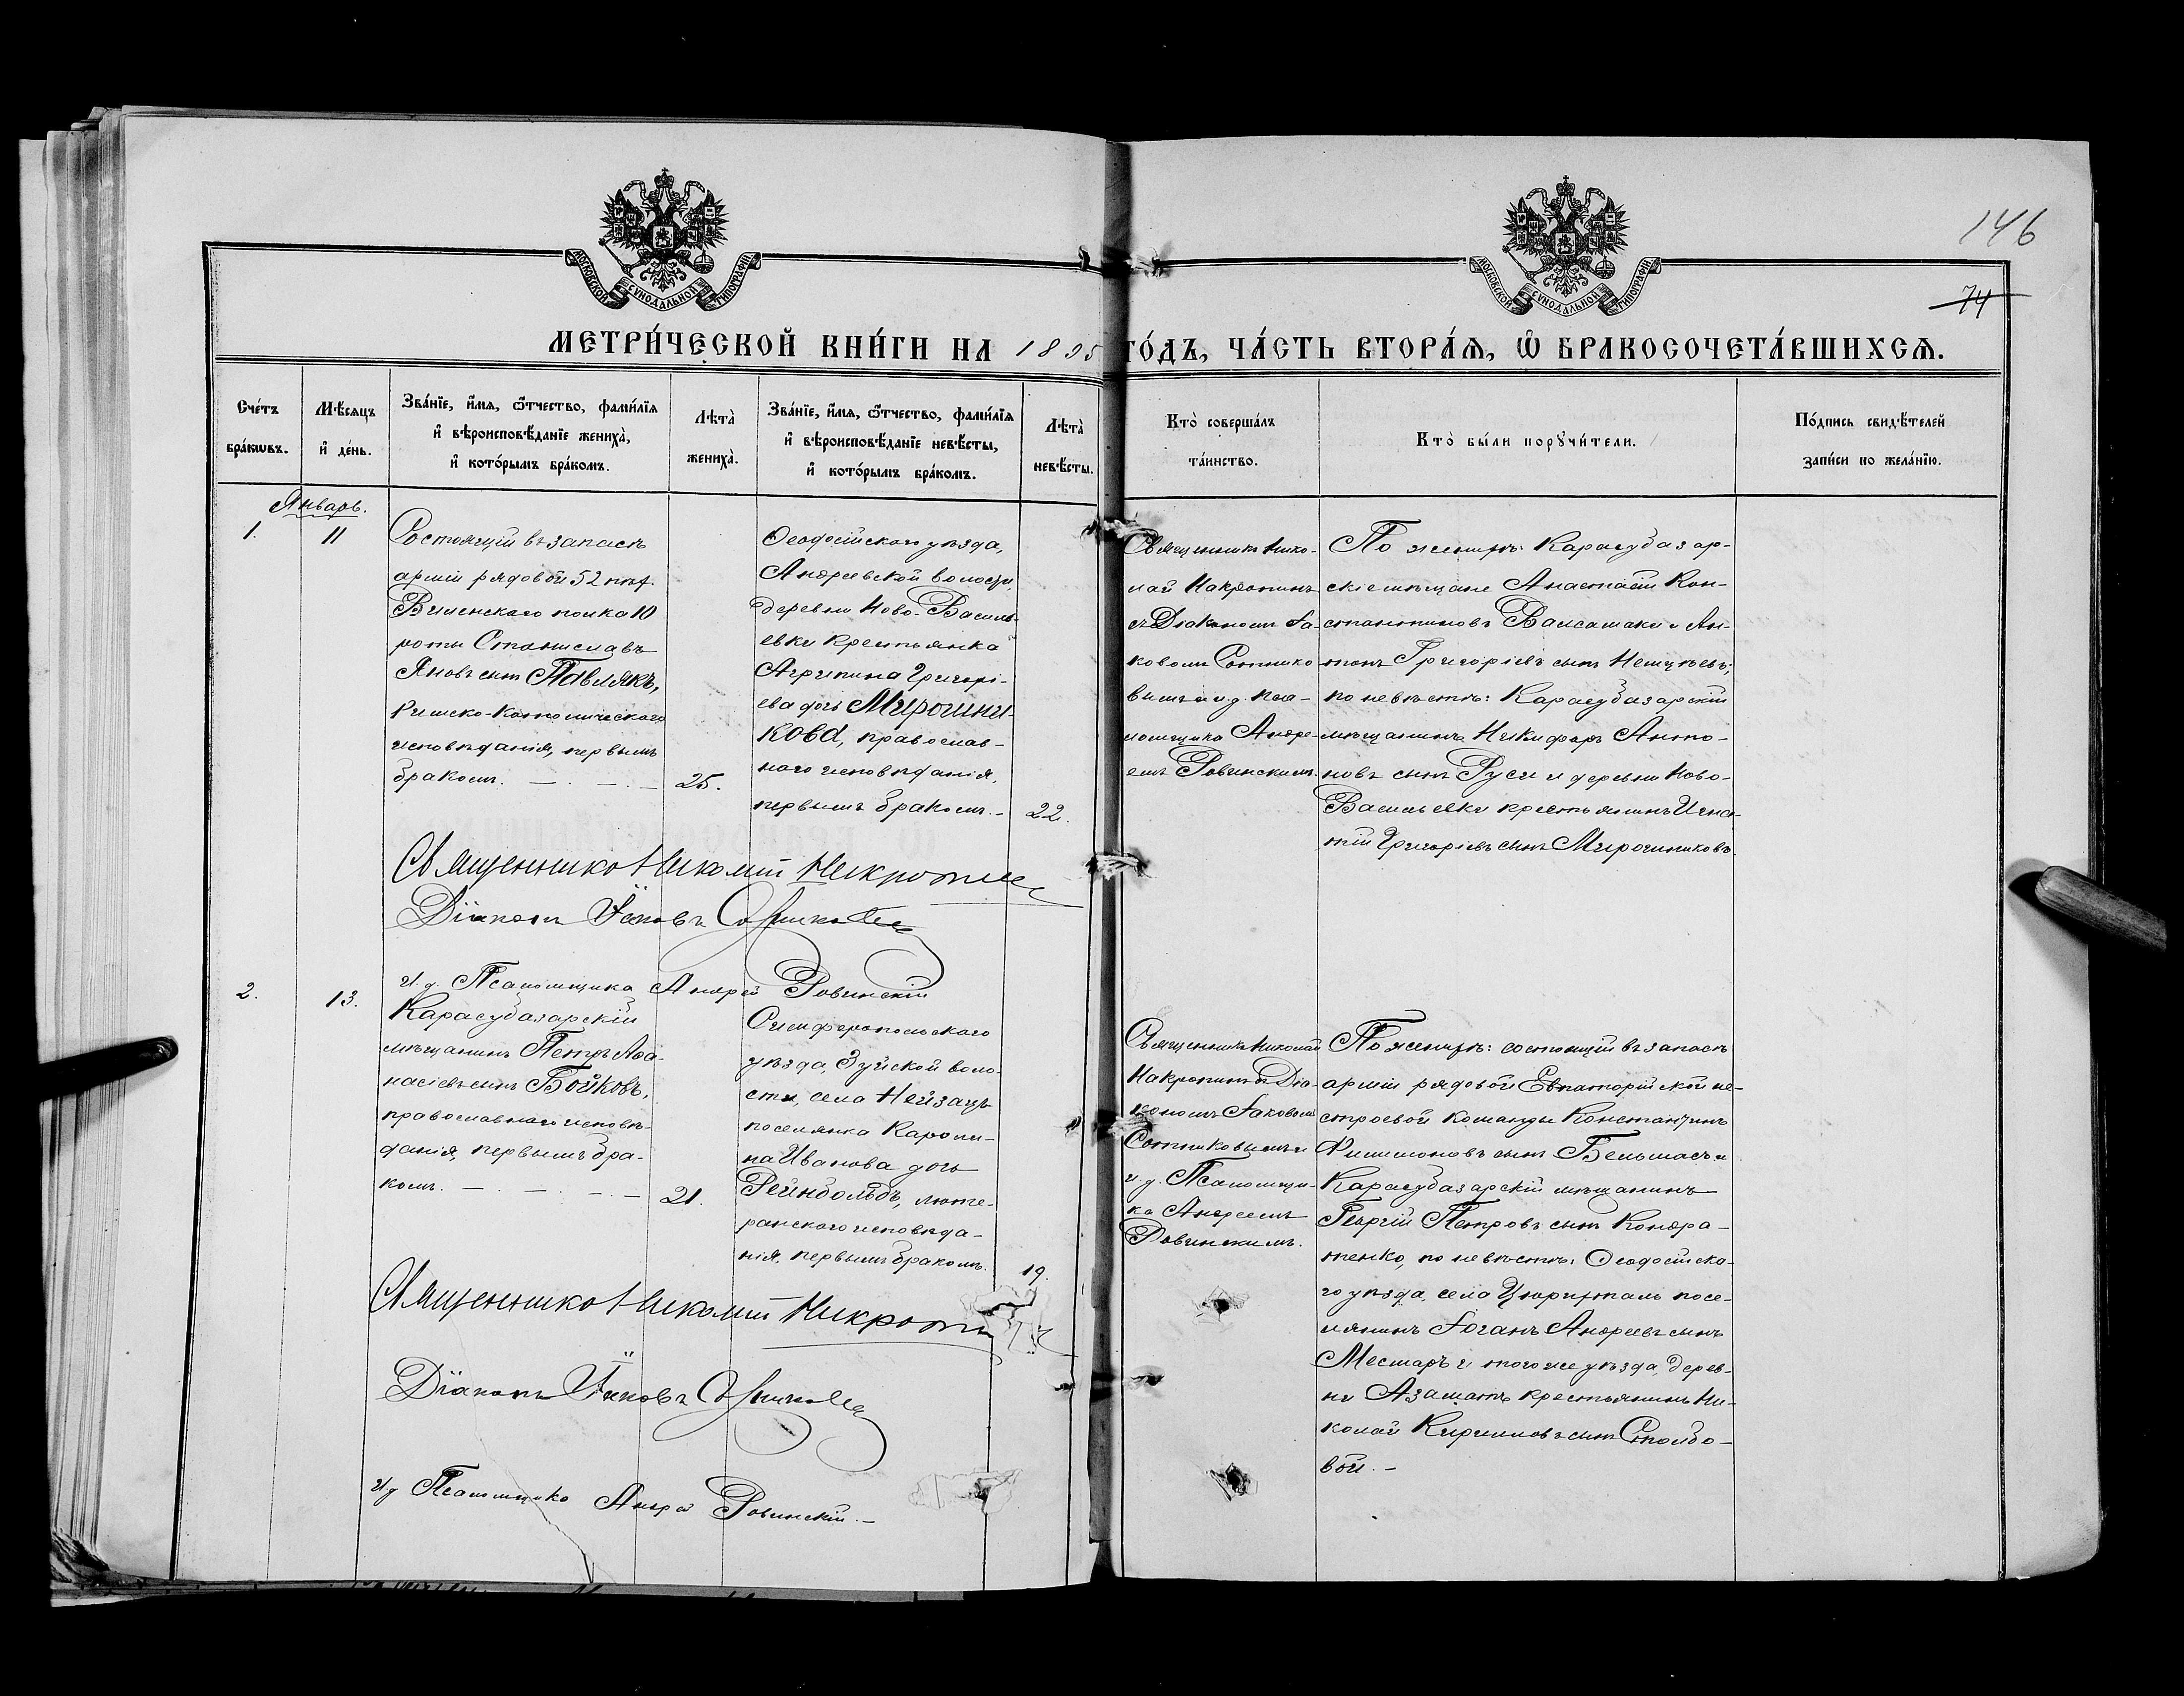 МОСКОВСКОЙ СѴНОДАЛЬНОЙ ТИПОГРАФІИ
МОСКОВСКОЙ СѴНОДАЛЬНОЙ ТИПОГРАФІИ
146
74
МЕТРИ́ЧЕСКОЙ КНИ́ГИ НА 1895 ГО́ДЪ, ЧА́СТЬ ВТОРА́Я, Ѽ БРАКОСОЧЕТА́ВШИХСЯ.
Сче́тъ
бра́кѡвъ.
Мѣ́сяцъ
и҆ де́нь.
Зва́нїе, и҆́мя, ѻ҆́тчество, фами́лїя
и҆ вѣроисповѣ́данїе жениха̀,
и҆ кото́рымъ бра́комъ.
Лѣта̀
жениха̀.
Зва́нїе, и҆́мя, ѻ҆́тчество, фами́лїя
и҆ вѣроисповѣ́данїе невѣ́сты,
и҆ кото́рымъ бра́комъ.
Лѣта̀
невѣ́сты.
Кто̀ соверша́лъ
та́инство.
Кто̀ бы́ли порꙋчи́тели.
По́дпись свидѣ́телей
запи́си по жела́нїю.
Январь.
1.
11
Состоящій въ запасѣ
арміи рядовой 52 пѣх.
Виленскаго полка 10
роты Станиславъ
Яновъ сынъ Павлякъ,
Римско-Католическаго
исповѣданія, первымъ
бракомъ. —
25.
Ѳеодосійскаго уѣзда,
Андреевской волости,
деревни Ново-Василь-
евки крестьянка
Агрипина Григорі-
ева дочь Мирошни-
кова, православ-
наго исповѣданія,
первымъ бракомъ. -
22.
Священникъ Нико-
лай Накропинъ
съ Діакономъ Іа-
ковомъ Сотнико
вымъ и и.д. пса-
ломщика Андре-
емъ Ровинскимъ.
По женихѣ: Карасубазар-
скіе мѣщане Анастасій Кон-
стантиновъ Валсамаки и Ан-
тонъ Григоріевъ сынъ Немцѣевъ;
по невѣстѣ: Карасубазарскій
мѣщанинъ Никифоръ Анто-
новъ сынъ Руси и деревни Ново-
Васильевки крестьянинъ Игна-
тій Григоріевъ сынъ Мирошниковъ.
Священникъ Николай Накропинъ
Діаконъ Іаковъ Сотниковъ
И.д. Псаломщика Андрей Ровинскій
2.
13.
Карасубазарскій
мѣщанинъ Петръ Аѳа-
насіевъ сынъ Бойковъ,
православнаго исповѣ-
данія, первымъ бра-
комъ. —
21.
Симферопольскаго
уѣзда, Зуйской воло-
сти, села Нейзацъ
поселянка Кароли-
на Иванова дочь
Рейнбольдъ, люте-
ранскаго исповѣда-
нія, первымъ бракомъ.
19.
Священникъ Николай
Накропинъ съ Діа-
кономъ Іаковомъ
Сотниковымъ и
и.д. Псаломщи-
ка Андреемъ
Ровинскимъ.
По женихѣ: состоящій въ запасѣ
арміи рядовой Евпаторійской не-
строевой команды Константинъ
Филимоновъ сынъ Бельмасъ и
Карасубазарскій мѣщанинъ
Георгій Петровъ сынъ Кондра-
тенко, по невѣстѣ: Ѳеодосійска-
го уѣзда, села Цюрихталь посе-
лянинъ Іоганъ Андреевъ сынъ
Месмаръ и того же уѣзда, дерев-
ни Азаматъ крестьянинъ Ни-
колай Кирилловъ сынъ Столбо-
вой. -
Священникъ Николай Накропинъ
Діаконъ Іаковъ Сотниковъ
И.д Псаломщика Андрей Ровинскій. -